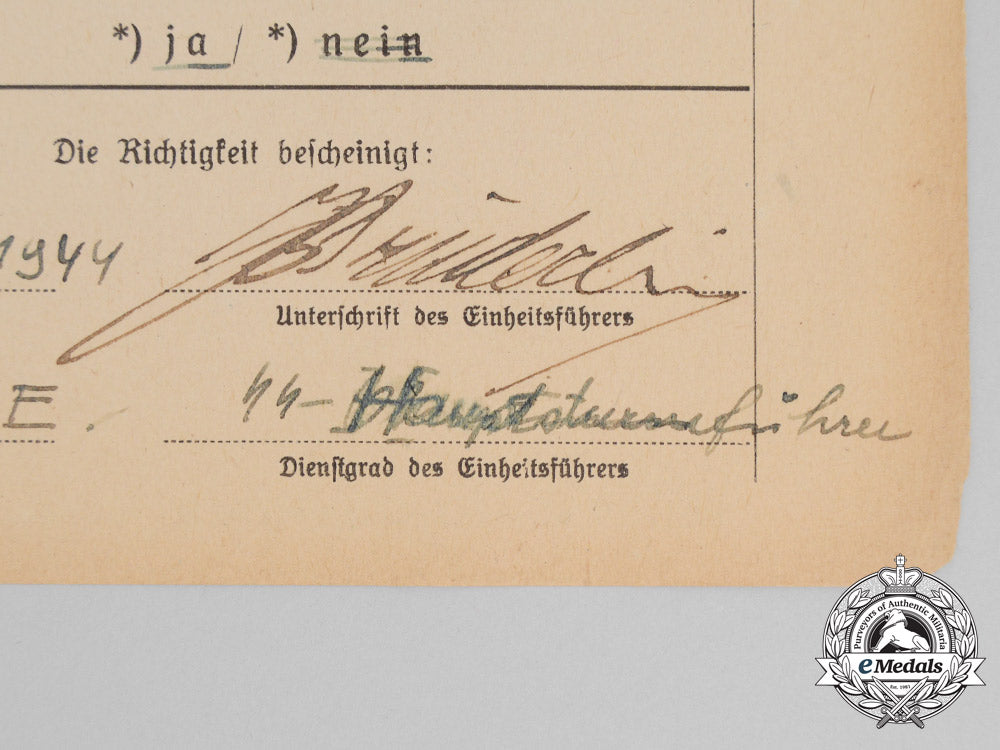 *) ja / *) nein
Die Richtigkeit bescheinigt:
1944
Unterschrift des Einheitsführers
E. SS-Hauptsturmführer
Dienstgrad des Einheitsführers
Purveyors of Authentic Militaria
eMedals
Est. 1997